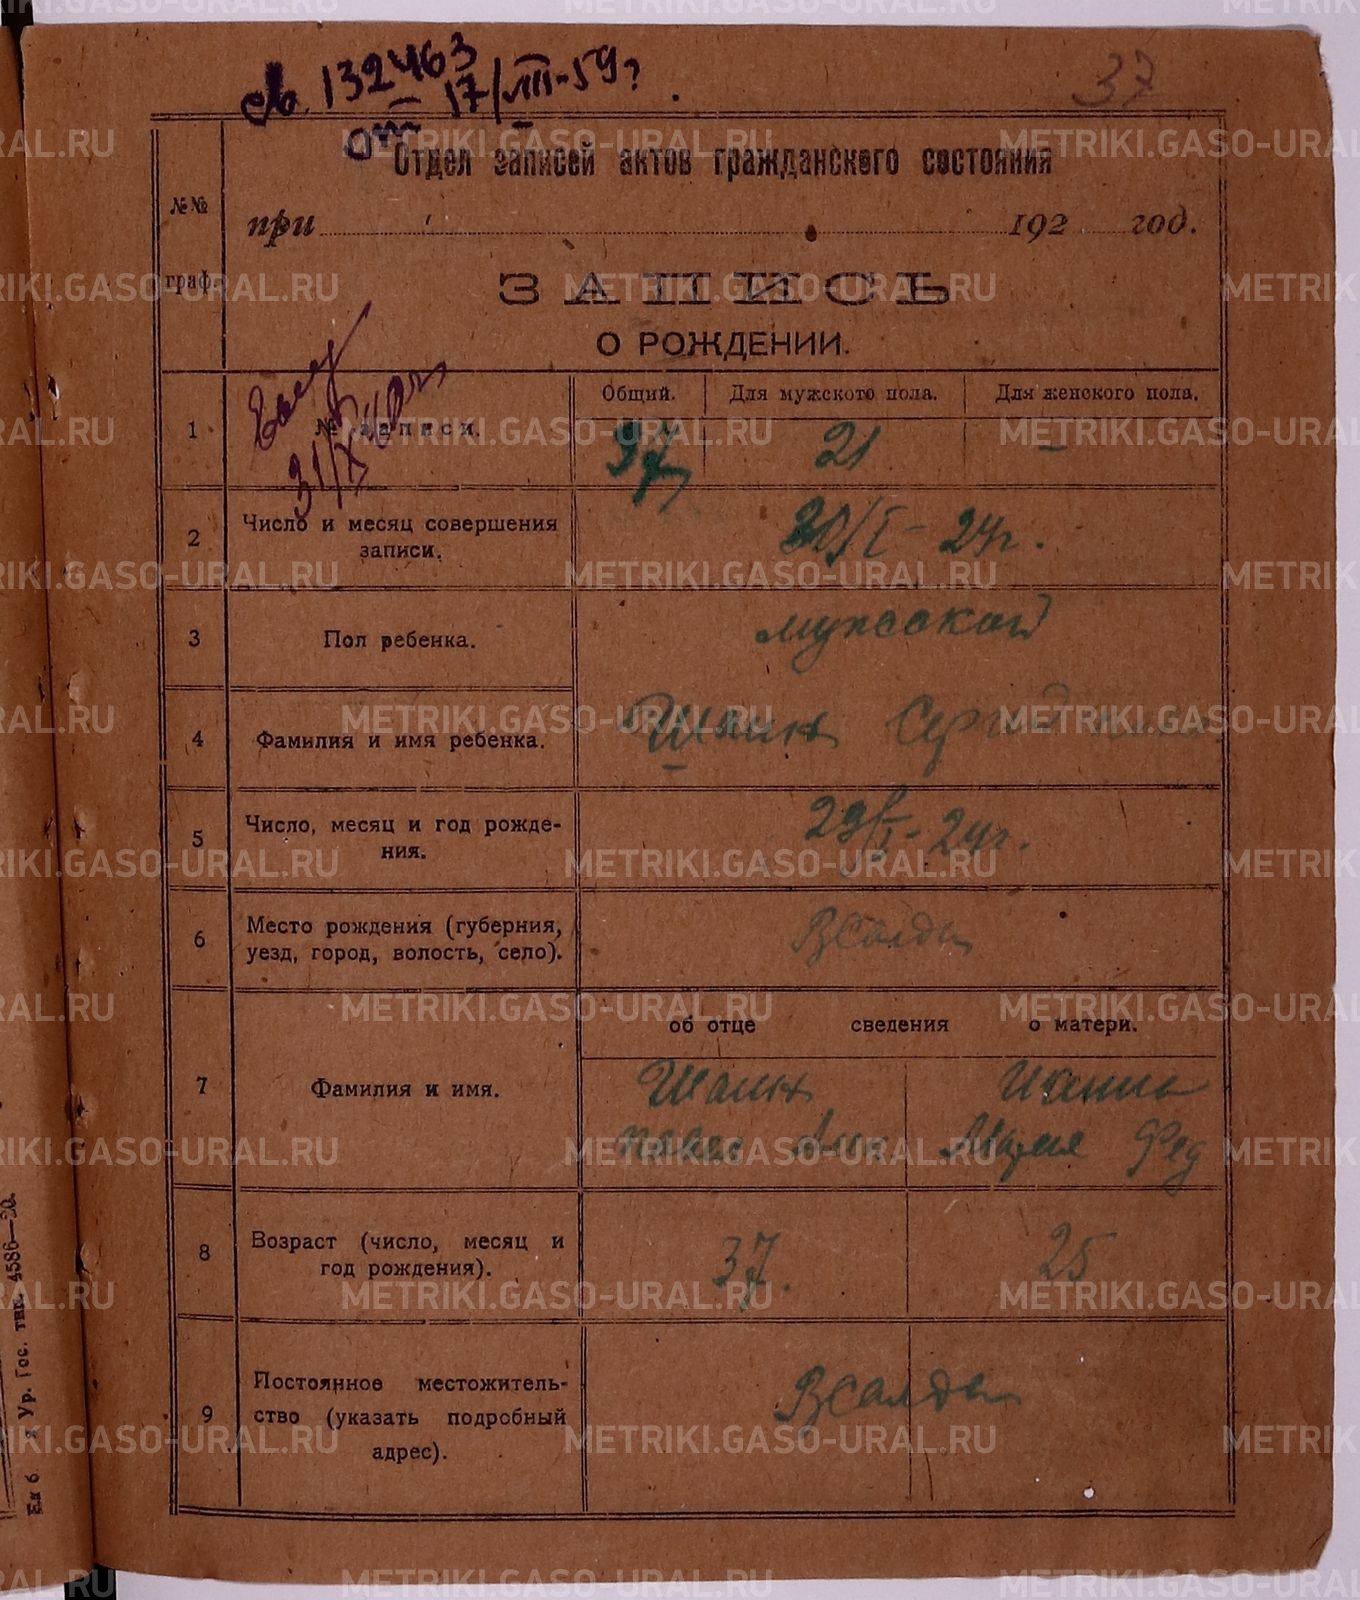 св. 132463
от 17/VIII-59?
37
Отдел записей актов гражданского состояния
№№ граф.
при 192 год.
ЗАПИСЬ
О РОЖДЕНИИ.
31/X
1
№ записи.
Общий. Для мужского пола. Для женского пола.
37 21 —
2
Число и месяц совершения
записи.
30/I - 24г.
3
Пол ребенка.
мужской
4
Фамилия и имя ребенка.
Шаин Сергей
5
Число, месяц и год рожде-
ния.
29/I - 24г.
6
Место рождения (губерния,
уезд, город, волость, село).
В Салда
7
Фамилия и имя.
об отце сведения о матери.
Шаин
Павел Мария Фед
8
Возраст (число, месяц и
год рождения).
37. 25
9
Постоянное местожитель-
ство (указать подробный
адрес).
В Салда
Ур. Гос. тип. 4586—
METRIKI.GASO-URAL.RU